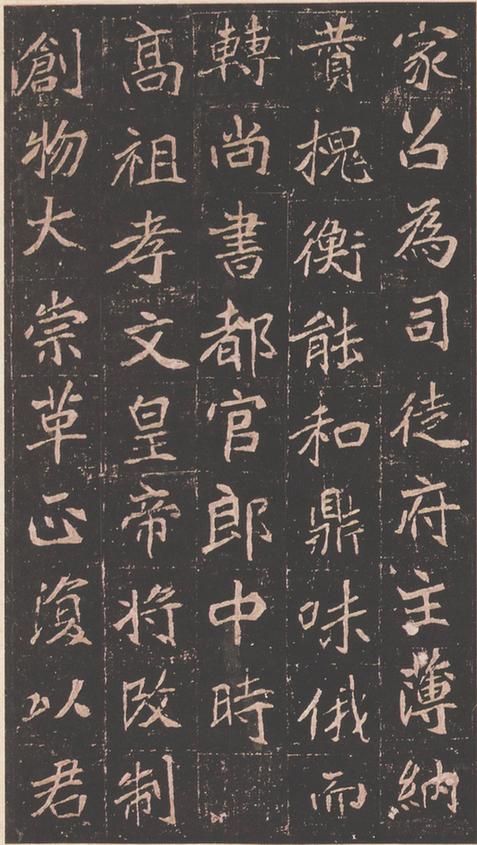 家召為司徒府主薄納
贊槐衡能和鼎味俄而
轉尚書都官郎中時
高祖孝文皇帝將改制
創物大崇革正復以君